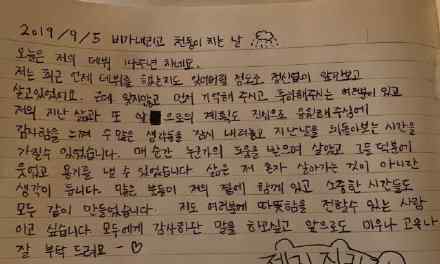 2019/9/5 비가내리고 천둥이 치는 날
오늘은 저의 데뷔 14주년 이네요.
저는 최근 언제 데뷔를 했는지도 잊어버릴 정도로 정신없이 앞만보고
살고있었어요. 근데 잊지않고 먼저 기억해 주시고 축하해주시는 여러분이 있고
저의 지난 삶과 또 앞으로의 계획도 진심으로 응원해주심에
감사함을 느껴 수 많은 생각들을 잠시 내려놓고 지난날을 되돌아보는 시간을
가질수 있었습니다. 매 순간 누군가의 도움을 받으며 살았고 그들 덕분에
웃었고 용기를 낼 수 있었습니다. 삶은 저 혼자 살아가는 것이 아니란
생각이 듭니다. 많은 분들이 저의 곁에 함께 있고 소중한 시간들도
모두 같이 만들었습니다. 저도 여러분께 따뜻함을 전할수 있는 사람
이고 싶습니다. 모두에게 감사하단 말을 하고싶고 앞으로도 미우나 고우나
잘 부탁 드려요 - ♡